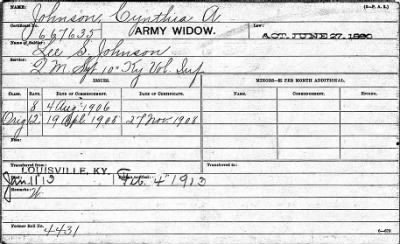 NAME: Johnson, Cynthia A. (3—P. A. L.)
Certificate No. 667635 ARMY WIDOW. ACT. JUNE 27. 1890
Name of Soldier: Lee S. Johnson
Service: Q M Sgt 10" Ky Vol. Inf
ISSUES. MINORS—$2 PER MONTH ADDITIONAL.
CLASS. RATE. DATE OF COMMENCEMENT. DATE OF CERTIFICATE.
8 4 Aug 1906
Orig 12 19 Apl 1908 27 Nov 1908
Transferred from
LOUISVILLE, KY.
Jan 11 13 Feb 4" 1913
Remarks: W
Former Roll No. 4431